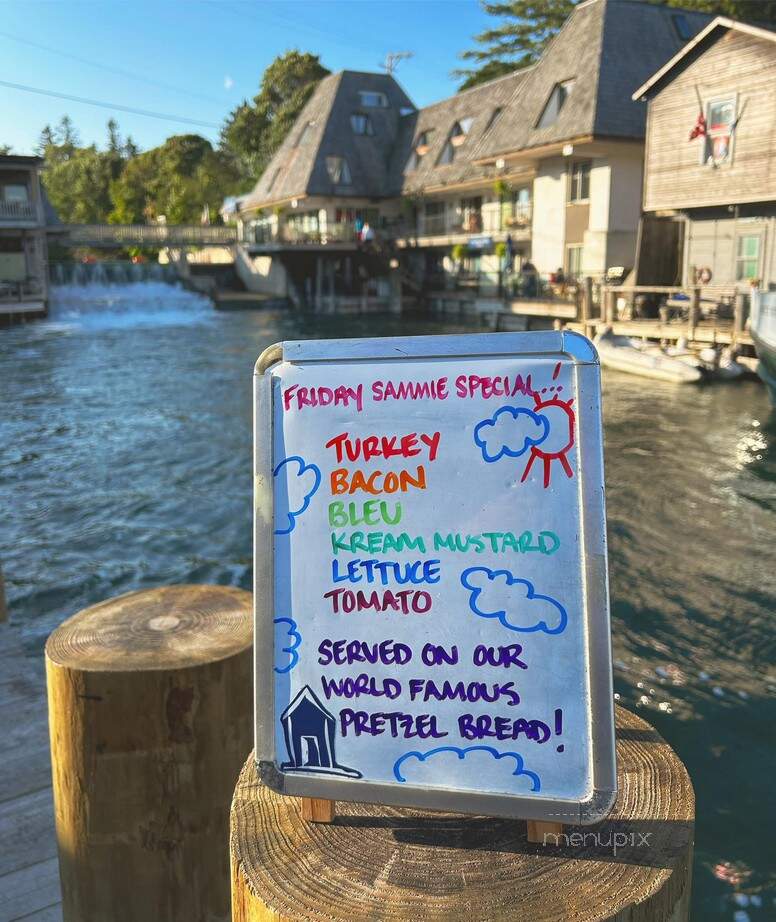 FRIDAY SAMMIE SPECIAL...!
TURKEY
BACON
BLEU
KREAM MUSTARD
LETTUCE
TOMATO
SERVED ON OUR
WORLD FAMOUS
PRETZEL BREAD!
menupix